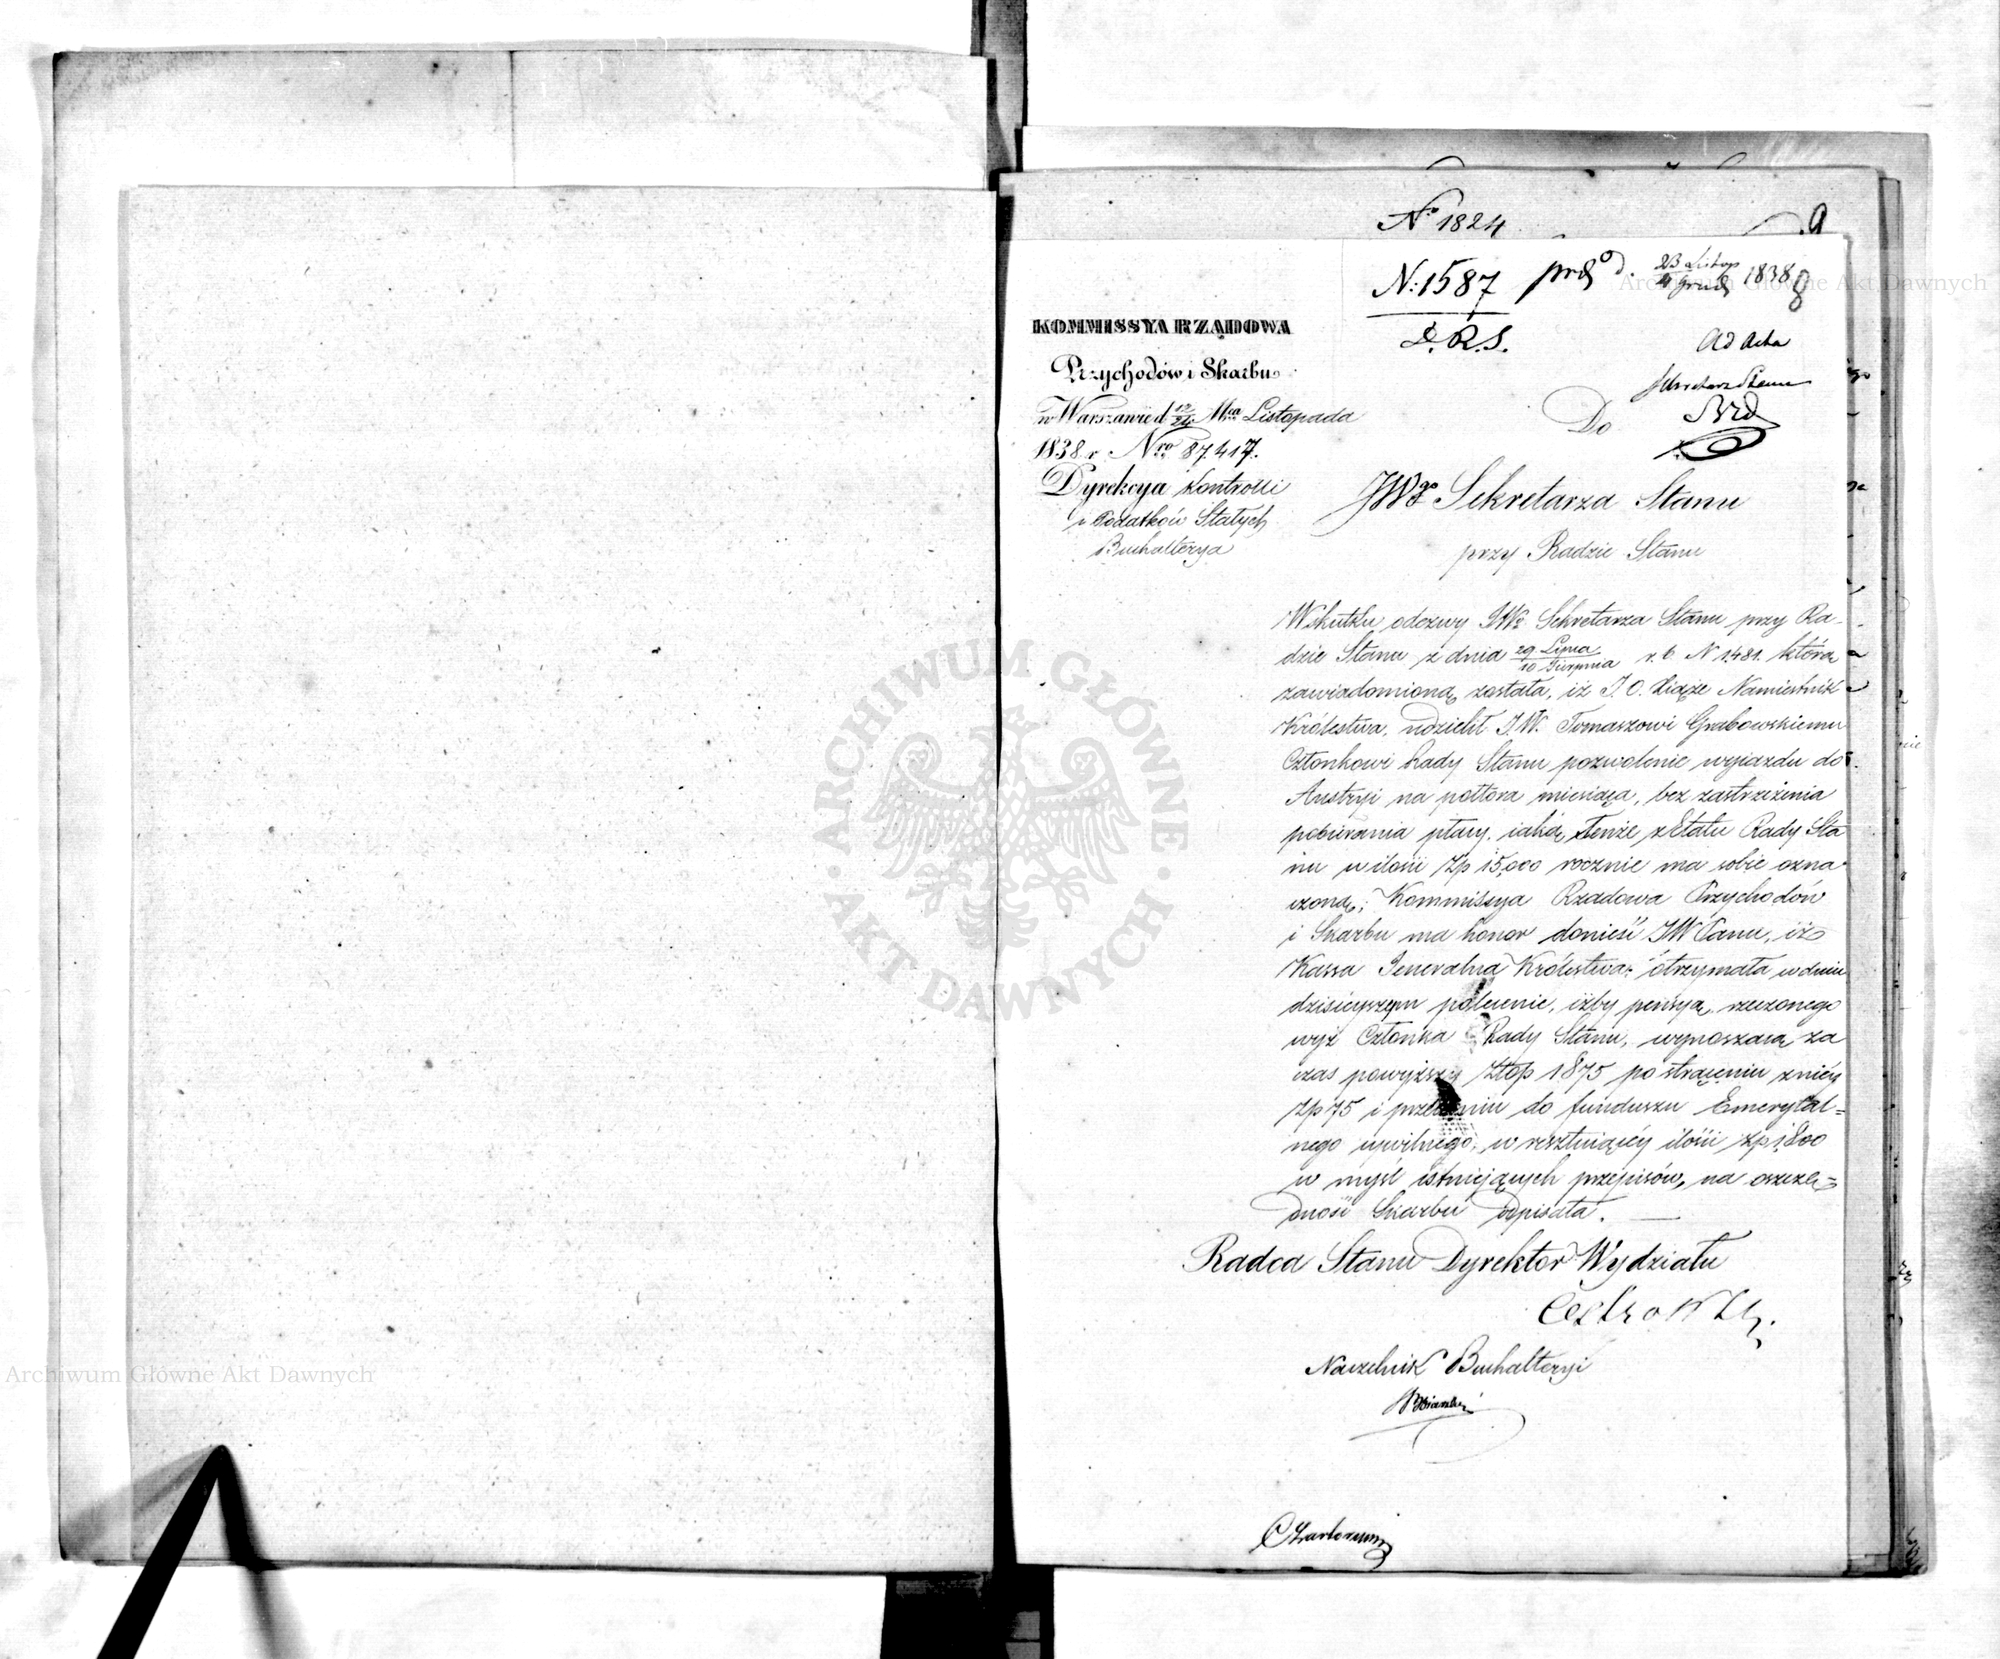 Nº 1824
9
N: 1587 prod d. 23 Listop / 4 Grud 1838 8
d. R. S.
Ad Acta
Sekretarz Stanu
KOMMISSYA RZĄDOWA
Przychodów i Skarbu
w Warszawie d 12/24 Mca Listopada
1838 r. Nro 87,417.
Dyrekcya Kontrolli
i Podatków Stałych
Buchalterya
Do
JWgo Sekretarza Stanu
przy Radzie Stanu
Wskutku odezwy JWo Sekretarza Stanu przy Ra-
dzie Stanu z dnia 29 Lipca / 10 Sierpnia r. b. N 1481. którą
zawiadomioną została, iż J. O. Xiąże Namiestnik
Królestwa, udzielił J.W. Tomaszowi Grabowskiemu
Członkowi Rady Stanu pozwolenie wyjazdu do
Austryi na półtora miesiąca, bez zastrzeżenia
pobierania płacy, iaką tenże z Etatu Rady Sta
nu w ilości Zp 15,000 rocznie ma sobie ozna-
czoną; Kommissya Rządowa Przychodów
i Skarbu ma honor donieść JW Panu, iż
Kassa Jeneralna Królestwa; otrzymała w dniu
dzisieyszym polecenie, iżby pensyą rzeczonego
wyż Członka Rady Stanu, wynoszącą za
czas powyższy Złop 1875 po strąceniu z niéy
Zp 75 i przelaniu do funduszu Emerytal=
nego cywilnego, w resztuiącéy ilości Zp 1800
w myśl istniejących przepisów, na oszczę=
dność Skarbu odpisała.
Radca Stanu Dyrektor Wydziału
Naczelnik Buchalteryi
ARCHIWUM GŁÓWNE · AKT DAWNYCH ·
Archiwum Główne Akt Dawnych
Archiwum Główne Akt Dawnych